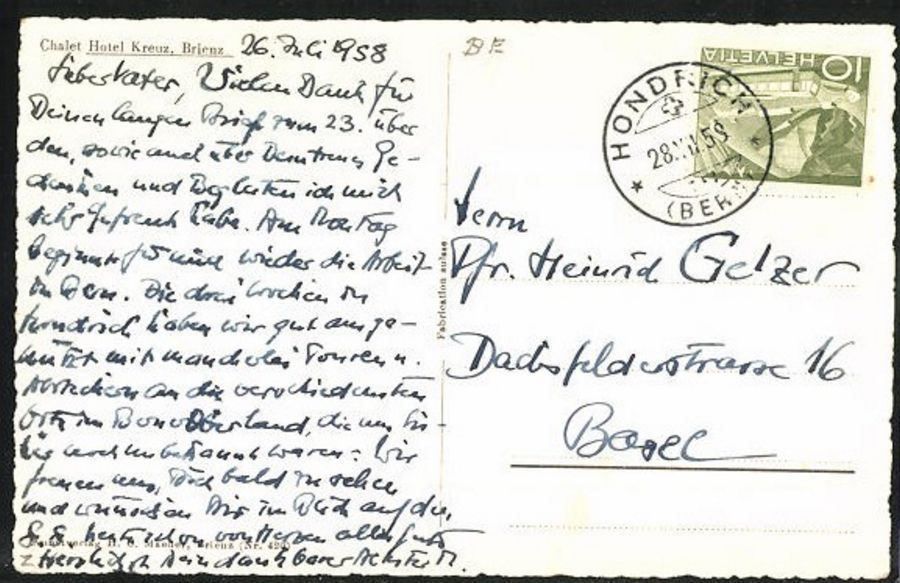 Chalet Hotel Kreuz, Brienz 26. Juli 1958
BE
Lieber Vater, Vielen Dank für
Deinen langen Brief vom 23. über
den, sowie auch über Deine Ge-
danken und ich mich
sehr gefreut habe. Am Montag
beginnt für mich wieder die Arbeit
in Bern. Die drei Wochen in
Hondrich haben wir gut ausge-
nützt mit mancherlei Touren u.
Abstechern an die verschiedensten
Orte im Berner Oberland, die uns bis-
her noch unbekannt waren. Wir
freuen uns, Dich bald zu sehen
und wünschen Dir im Blick auf die
heute schon von Herzen alles Gute
Herzlich Dein dankbarer
Kunstverlag H. U. Maeder, Brienz (Nr. 420)
Fabrication suisse
HELVETIA 10
HONDRICH
28.VII.58
(BERN)
Herrn
Pfr. Heinrich Gelzer
Dachsfelderstrasse 16
Basel